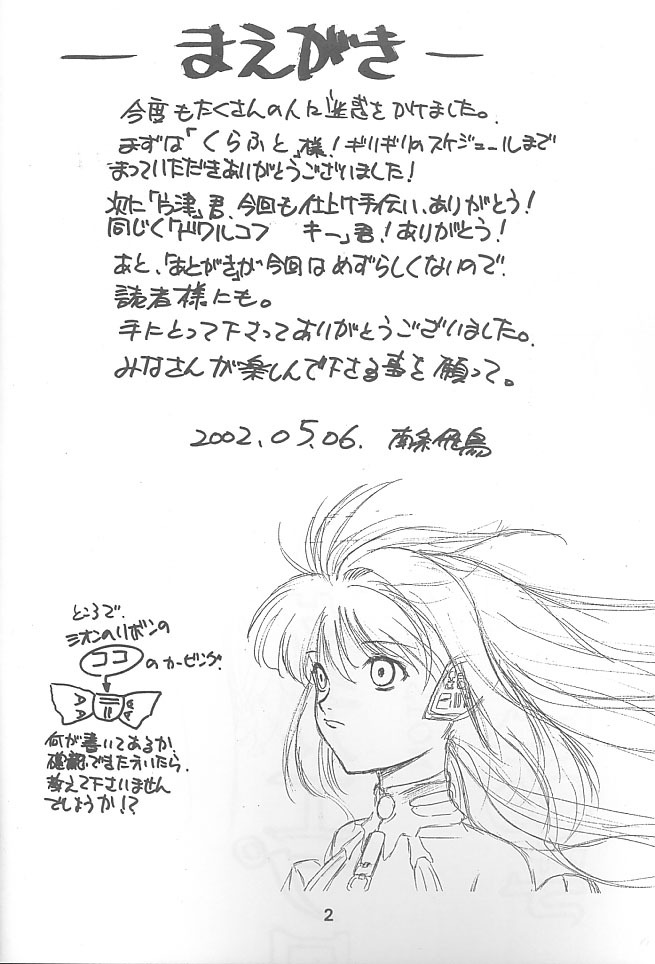 ― まえがき ―
今度もたくさんの人に迷惑をかけました。
まずは「くらふと」様！ギリギリのスケジュールまで
まっていただきありがとうございました！
次に「片津」君、今回も仕上げ手伝い、ありがとう！
同じく「ドワルコフ　キー」君！ありがとう！
あと、「あとがき」が今回はめずらしくないので、
読者様にも。
手にとって下さってありがとうございました。
みなさんが楽しんで下さる事を願って。
2002.05.06. 南条飛鳥
ところで、
シオンのリボンの
ココ のカービング、
何が書いてあるか、
確認できた方いたら、
教えて下さいません
でしょうか!?
2